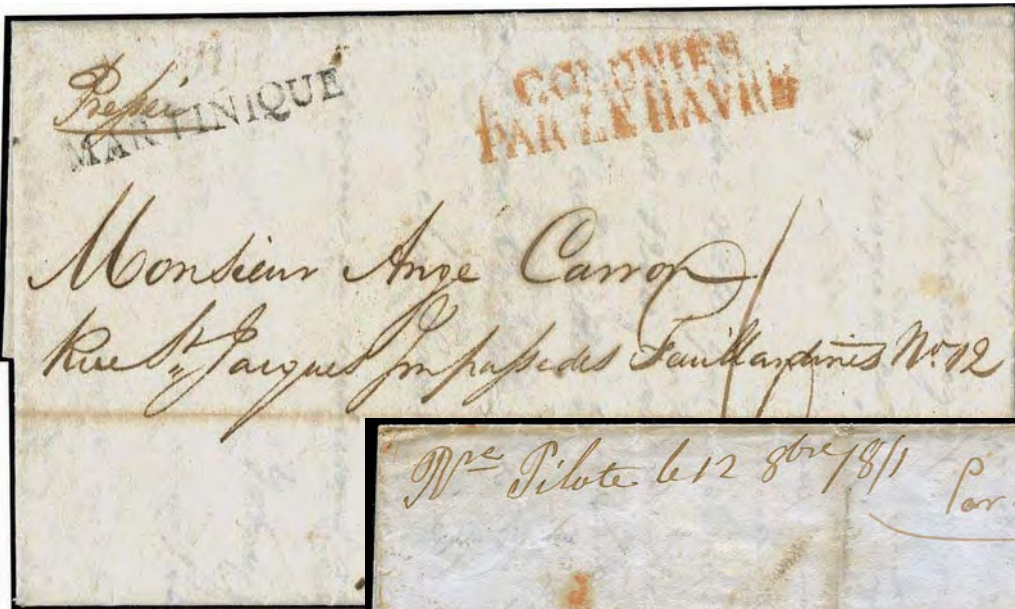 Pressée
MARTINIQUE
COLONIES
PAR LE HAVRE
Monsieur Ange Carron
Rue St Jacques Impasse des Feuillandines No. 12
Rre Pilote le 12 8bre
Par